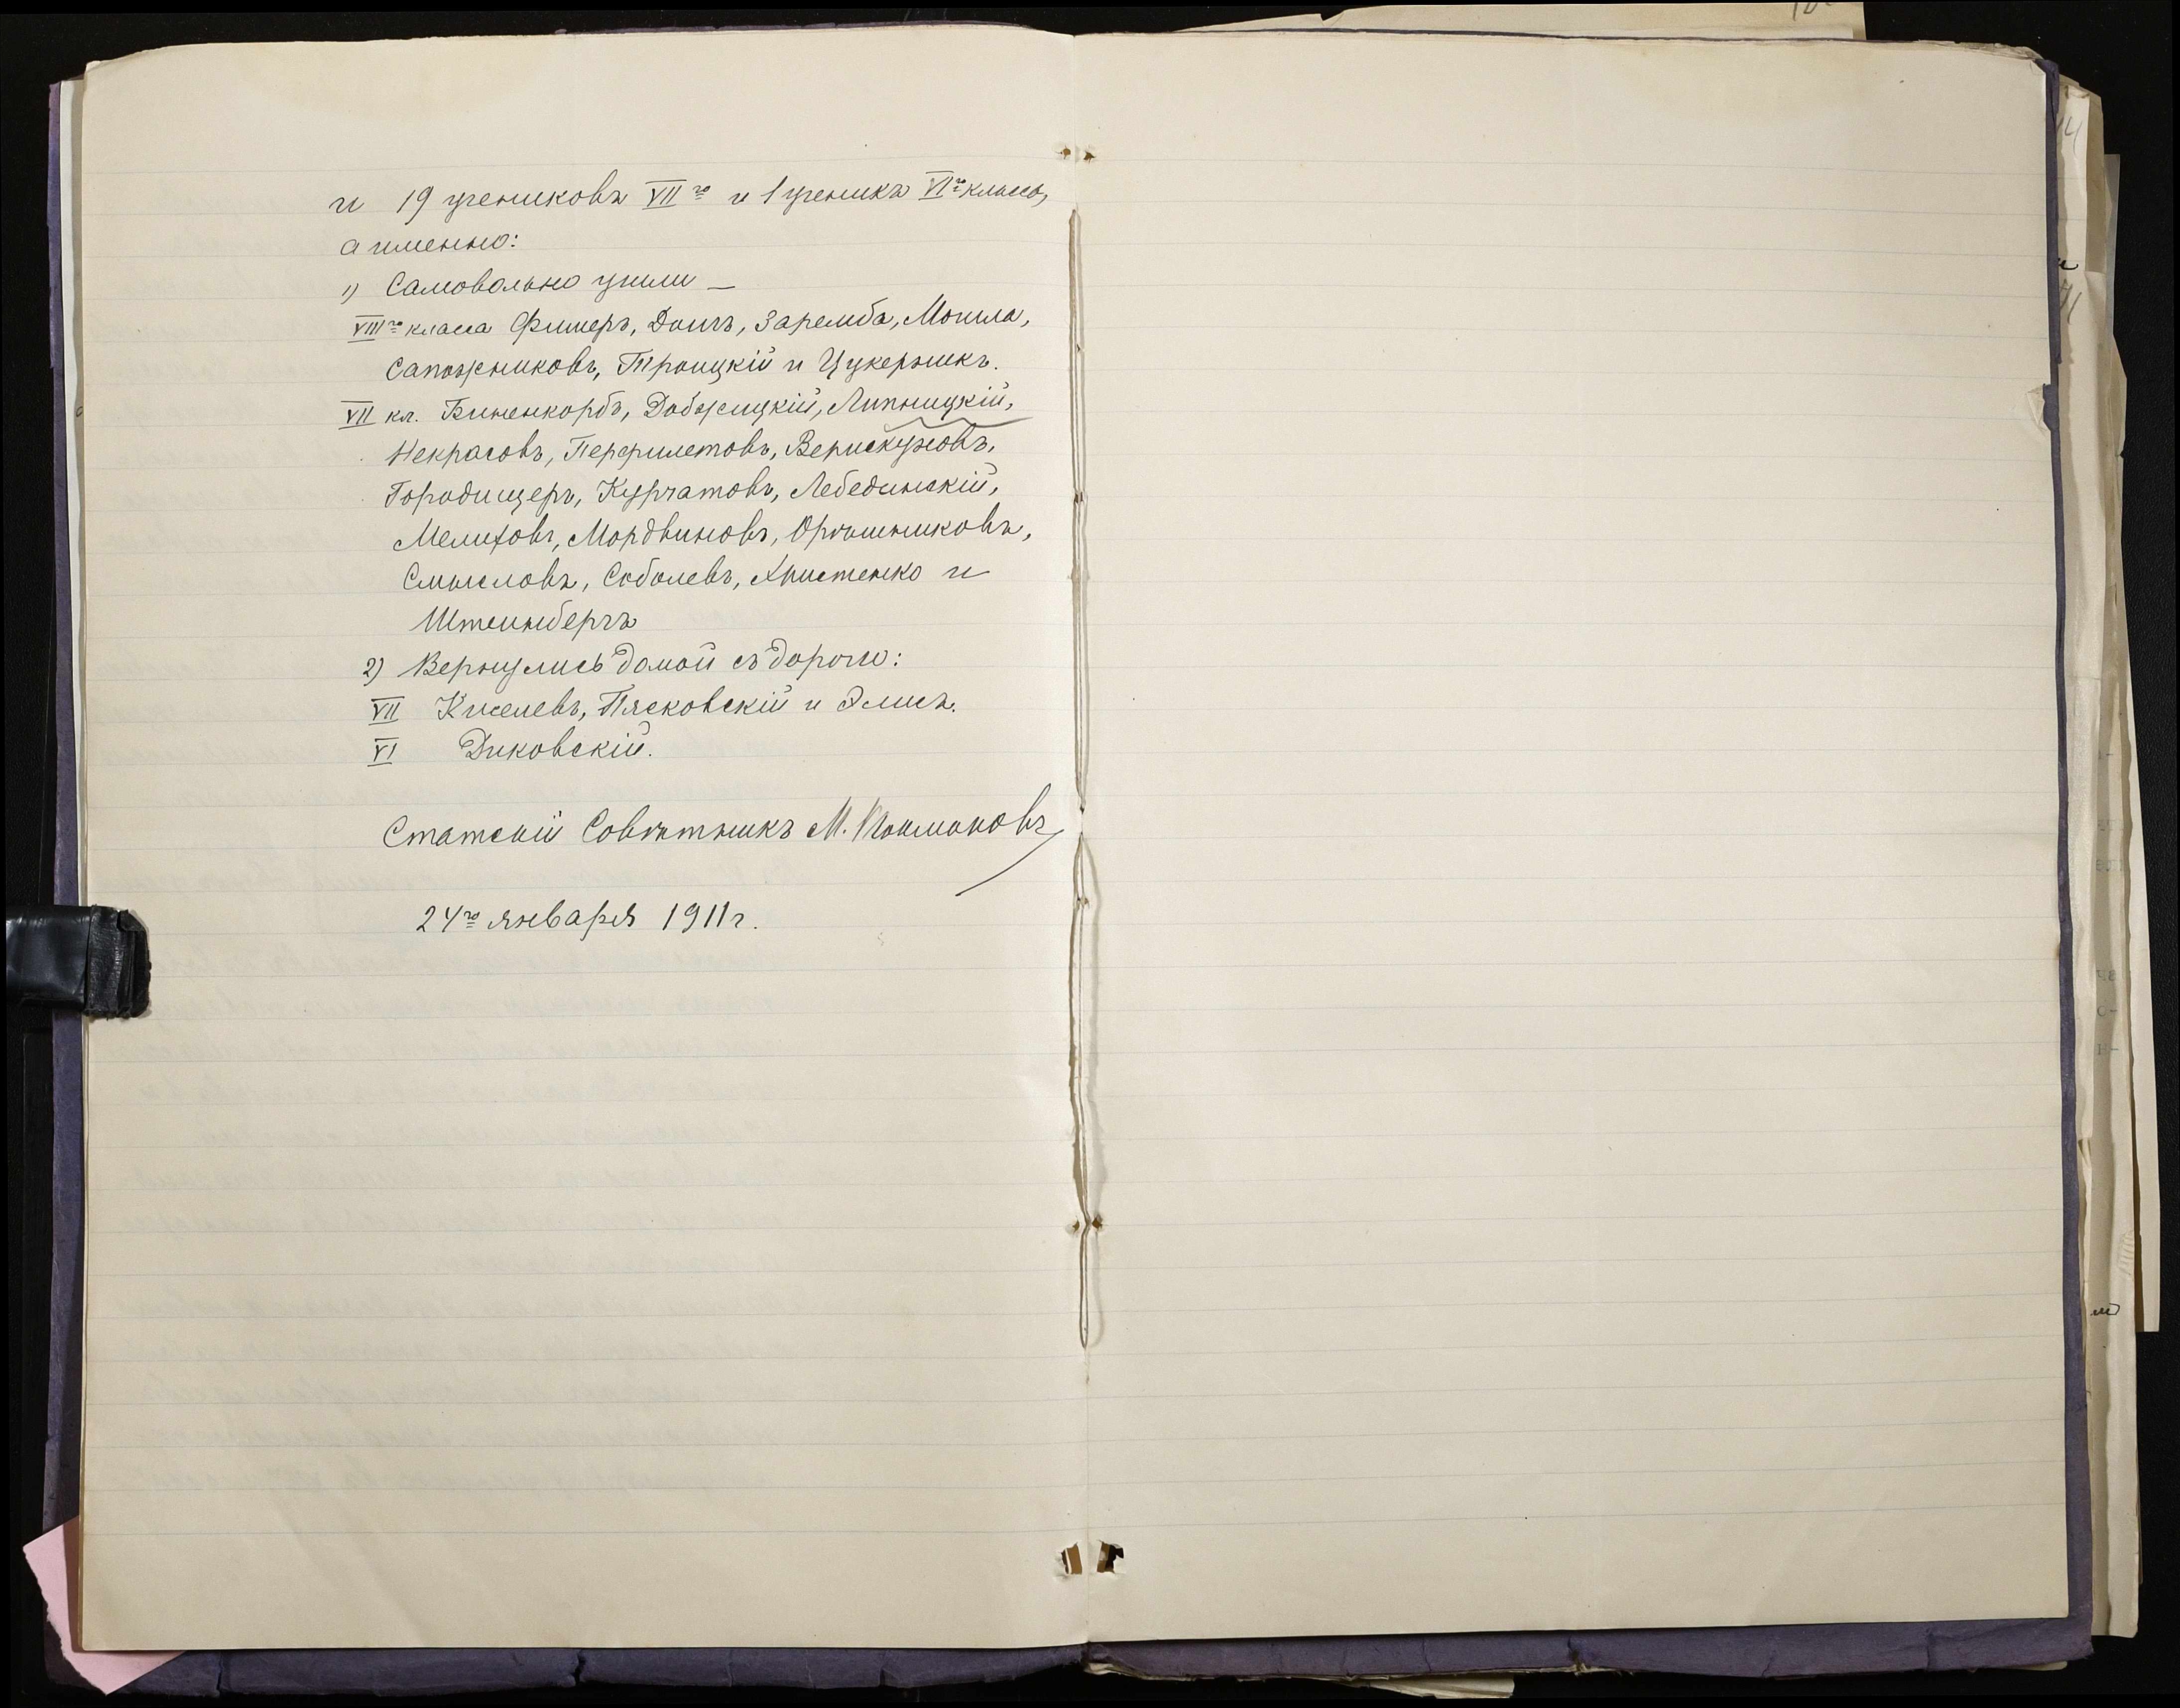 и 19 учениковъ VII го и 1 ученикъ VI го класса,
а именно:
1) Самовольно ушли —
VIII го класса Фишеръ, Доичъ, Заремба, Могила,
Сапожниковъ, Троицкій и Цукерникъ.
VII кл. Биненкорбъ, Добжицкій, Липницкій,
Некрасовъ, Перфилетовъ, Верискуновъ,
Городищеръ, Курчатовъ, Лебединскій,
Мелиховъ, Мордвиновъ, Оргишниковъ,
Смысловъ, Соболевъ, Христенко и
Штеинбергъ
2) Вернулись домой съ дороги:
VII Киселевъ, Пясковскій и Элисъ.
VI Диковскій.
Статскій Совѣтникъ М.
24 го января 1911 г.